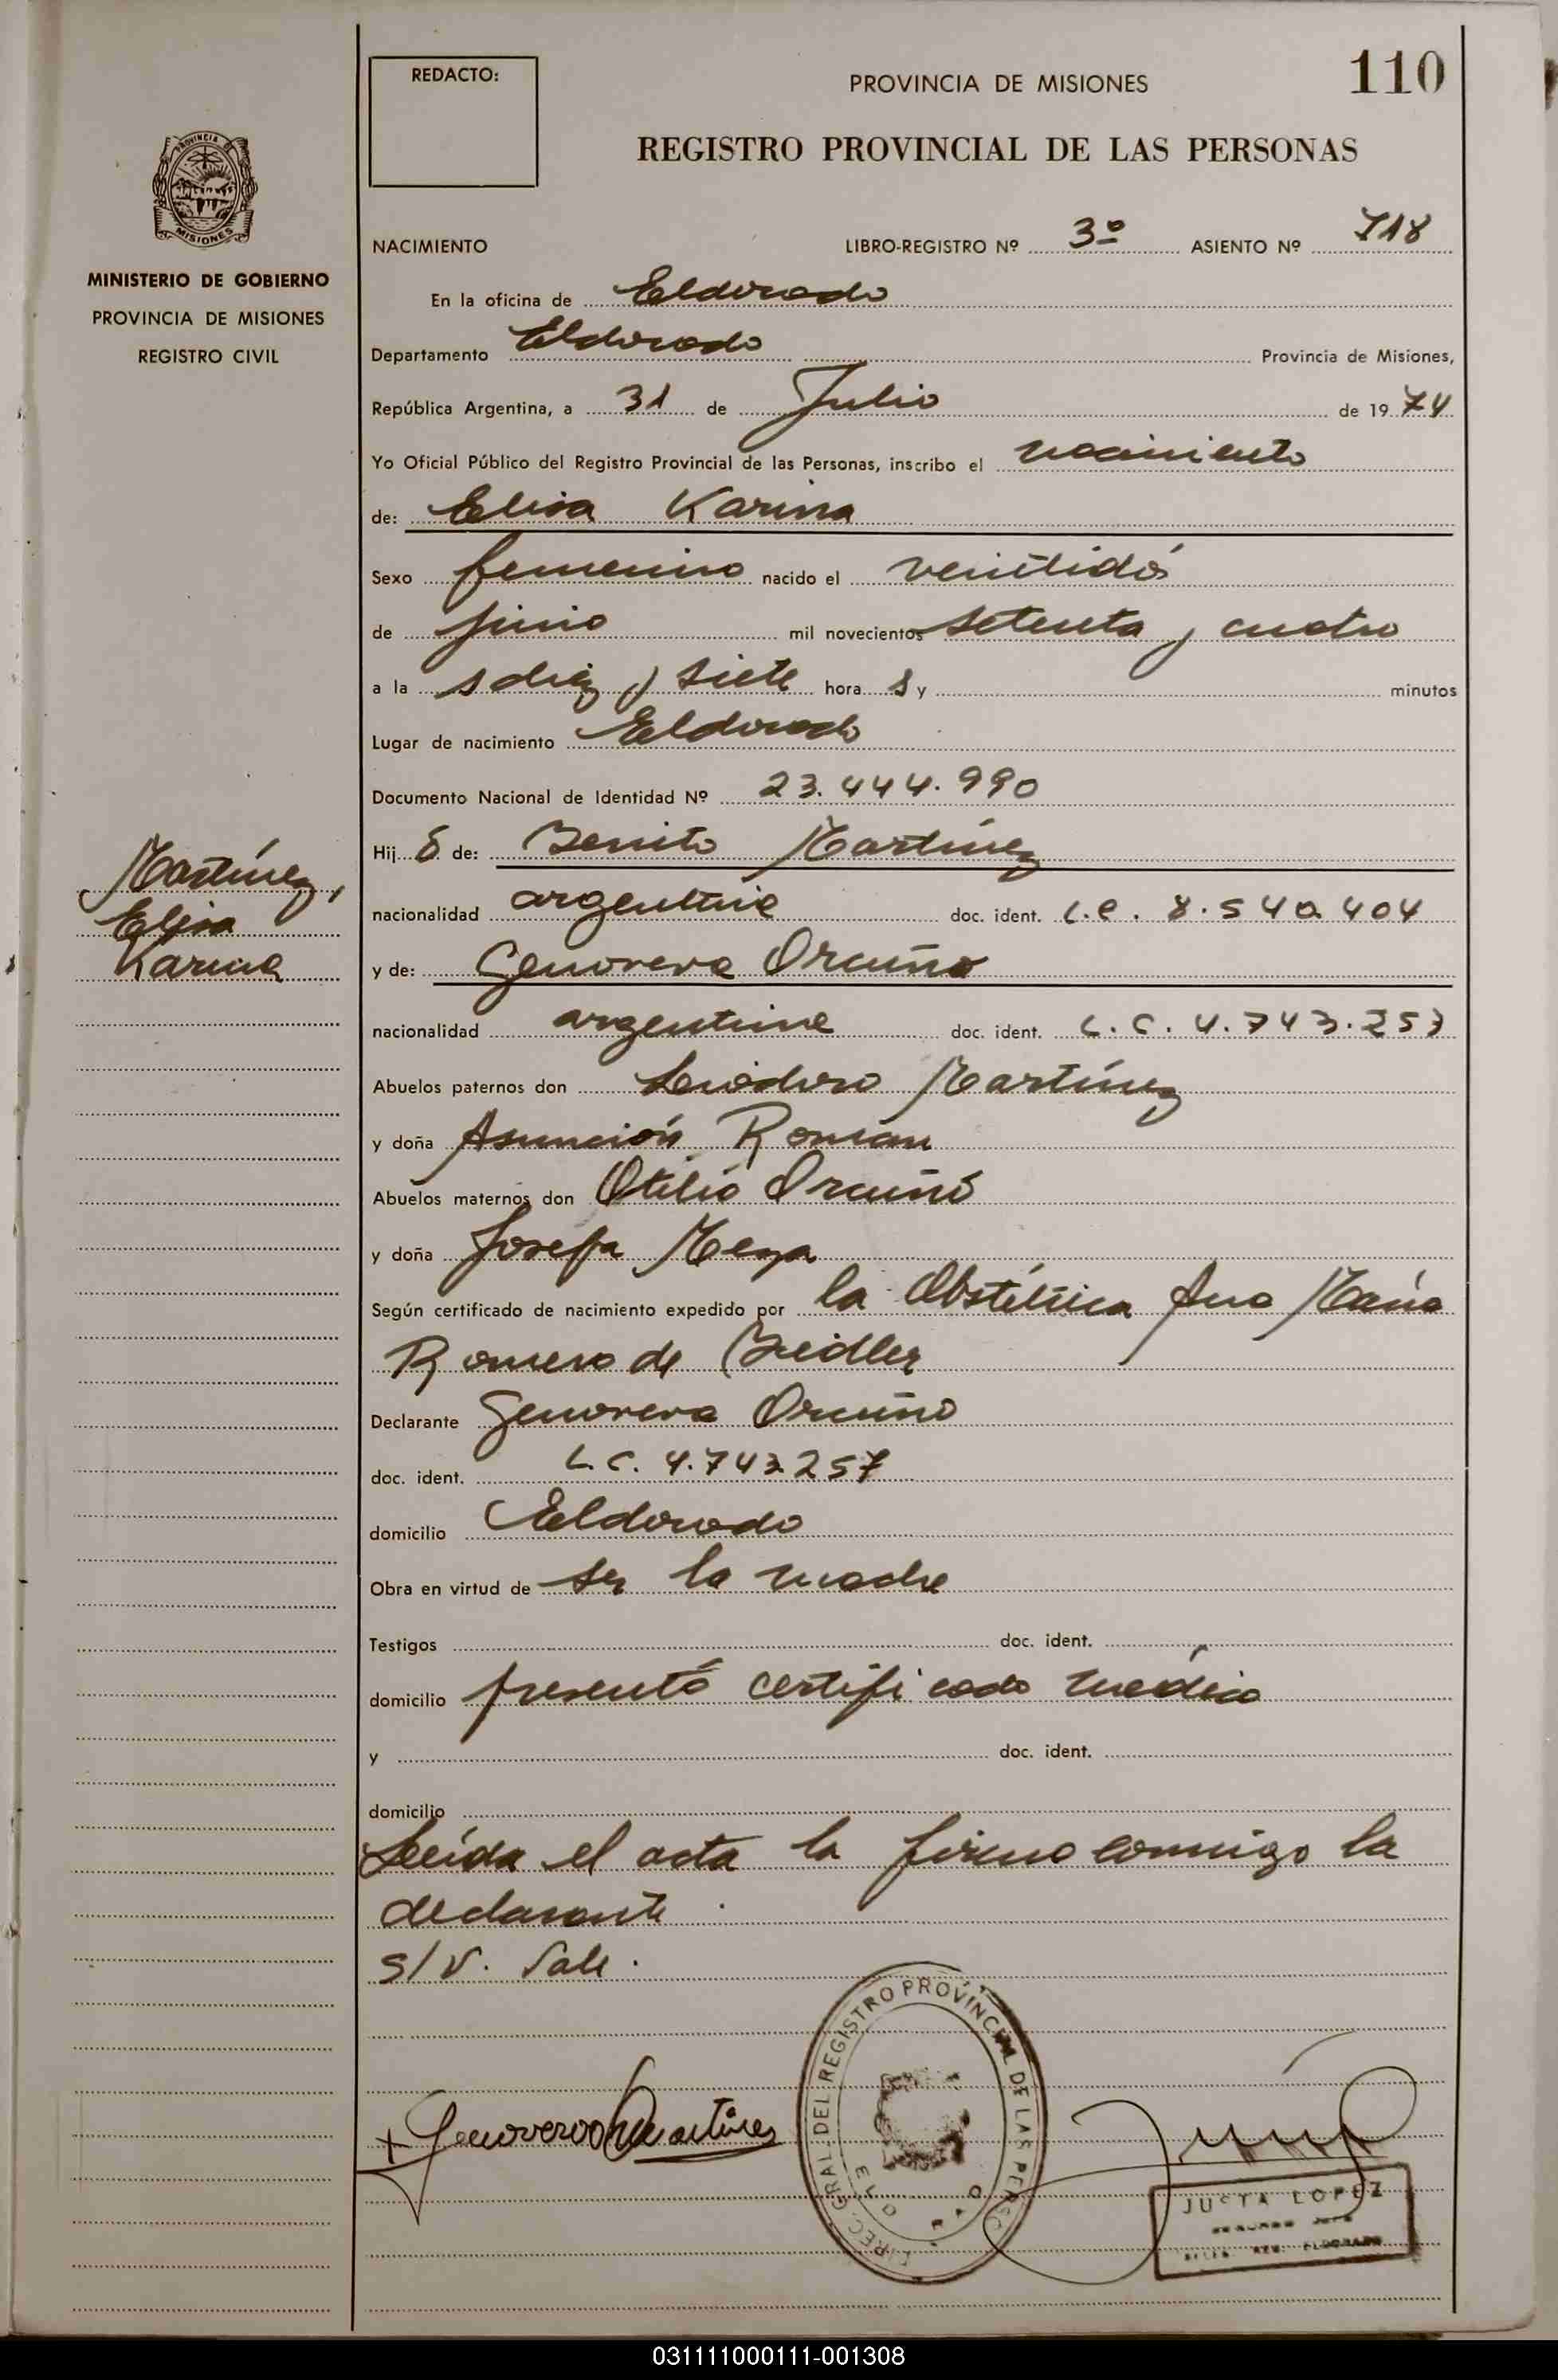 REDACTO:
PROVINCIA DE MISIONES
110
REGISTRO PROVINCIAL DE LAS PERSONAS
PROVINCIA DE
MISIONES
MINISTERIO DE GOBIERNO
PROVINCIA DE MISIONES
REGISTRO CIVIL
NACIMIENTO LIBRO-REGISTRO Nº 3º ASIENTO Nº 718
En la oficina de Eldorado
Departamento Eldorado Provincia de Misiones,
República Argentina, a 31 de Julio de 19 74
Yo Oficial Público del Registro Provincial de las Personas, inscribo el nacimiento
de: Elisa Karina
Sexo femenino nacido el veintidós
de junio mil novecientos setenta y cuatro
a la s diez y siete hora s y minutos
Lugar de nacimiento Eldorado
Documento Nacional de Identidad Nº 23.444.990
Hij de: Benito Martínez
Martínez,
Elisa
Karina
nacionalidad argentina doc. ident. L.E. 8.540.404
y de: Genoveva Orcuño
nacionalidad argentina doc. ident. L.C. 4.743.257
Abuelos paternos don Leiodoro Martínez
y doña Asunción Roman
Abuelos maternos don Otilio Orcuño
y doña Josefa Meza
Según certificado de nacimiento expedido por la Obstétrica Ana María
Romero de
Declarante Genoveva Orcuño
doc. ident. L.C. 4.743.257
domicilio Eldorado
Obra en virtud de ser la madre
Testigos doc. ident.
domicilio presentó certificado médico
y doc. ident.
domicilio
Leída el acta la firma conmigo la
declarante
S/V. Vale.
DIREC. GRAL. DEL REGISTRO PROVINCIAL DE LAS PERSO
Genoveva Martínes
JUSTA LOPEZ
031111000111-001308